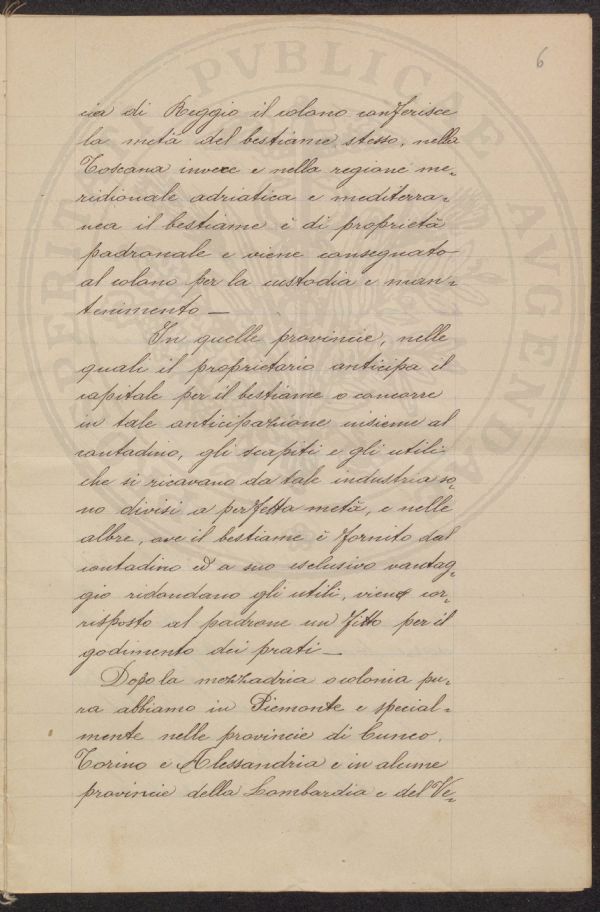 6
cia di Reggio il colono conferisce
la metà del bestiame stesso, nella
Toscana invece e nella regione me-
ridionale adriatica e mediterra-
nea il bestiame è di proprietà
padronale e viene consegnato
al colono per la custodia e man-
tenimento —
In quelle provincie, nelle
quali il proprietario anticipa il
capitale per il bestiame o concorre
in tale anticipazione insieme al
contadino, gli scapiti e gli utili
che si ricavano da tale industria so-
no divisi a perfetta metà, e nelle
altre, ove il bestiame è fornito dal
contadino ed a suo esclusivo vantag-
gio ridondano gli utili, viene cor-
risposto al padrone un fitto per il
godimento dei prati —
Dopo la mezzadria o colonia pu-
ra abbiamo in Piemonte e special-
mente nelle provincie di Cuneo,
Torino e Alessandria e in alcune
provincie della Lombardia e del Ve-
PVBLICAE AVGENDAE